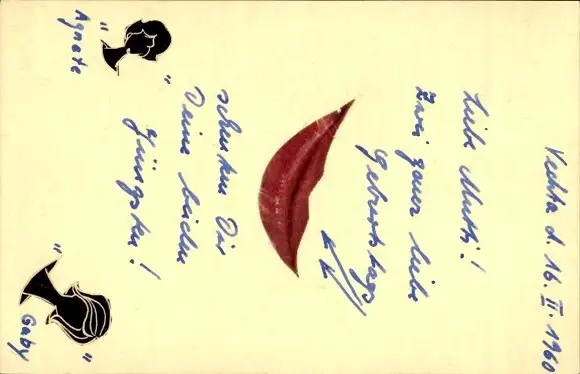 Vechta d. 16. II. 1960
Liebe Mutti!
Zwei ganz liebe
Geburtstags
schenken Dir
Deine beiden
Jüngsten!
"Agnete"
"Gaby"